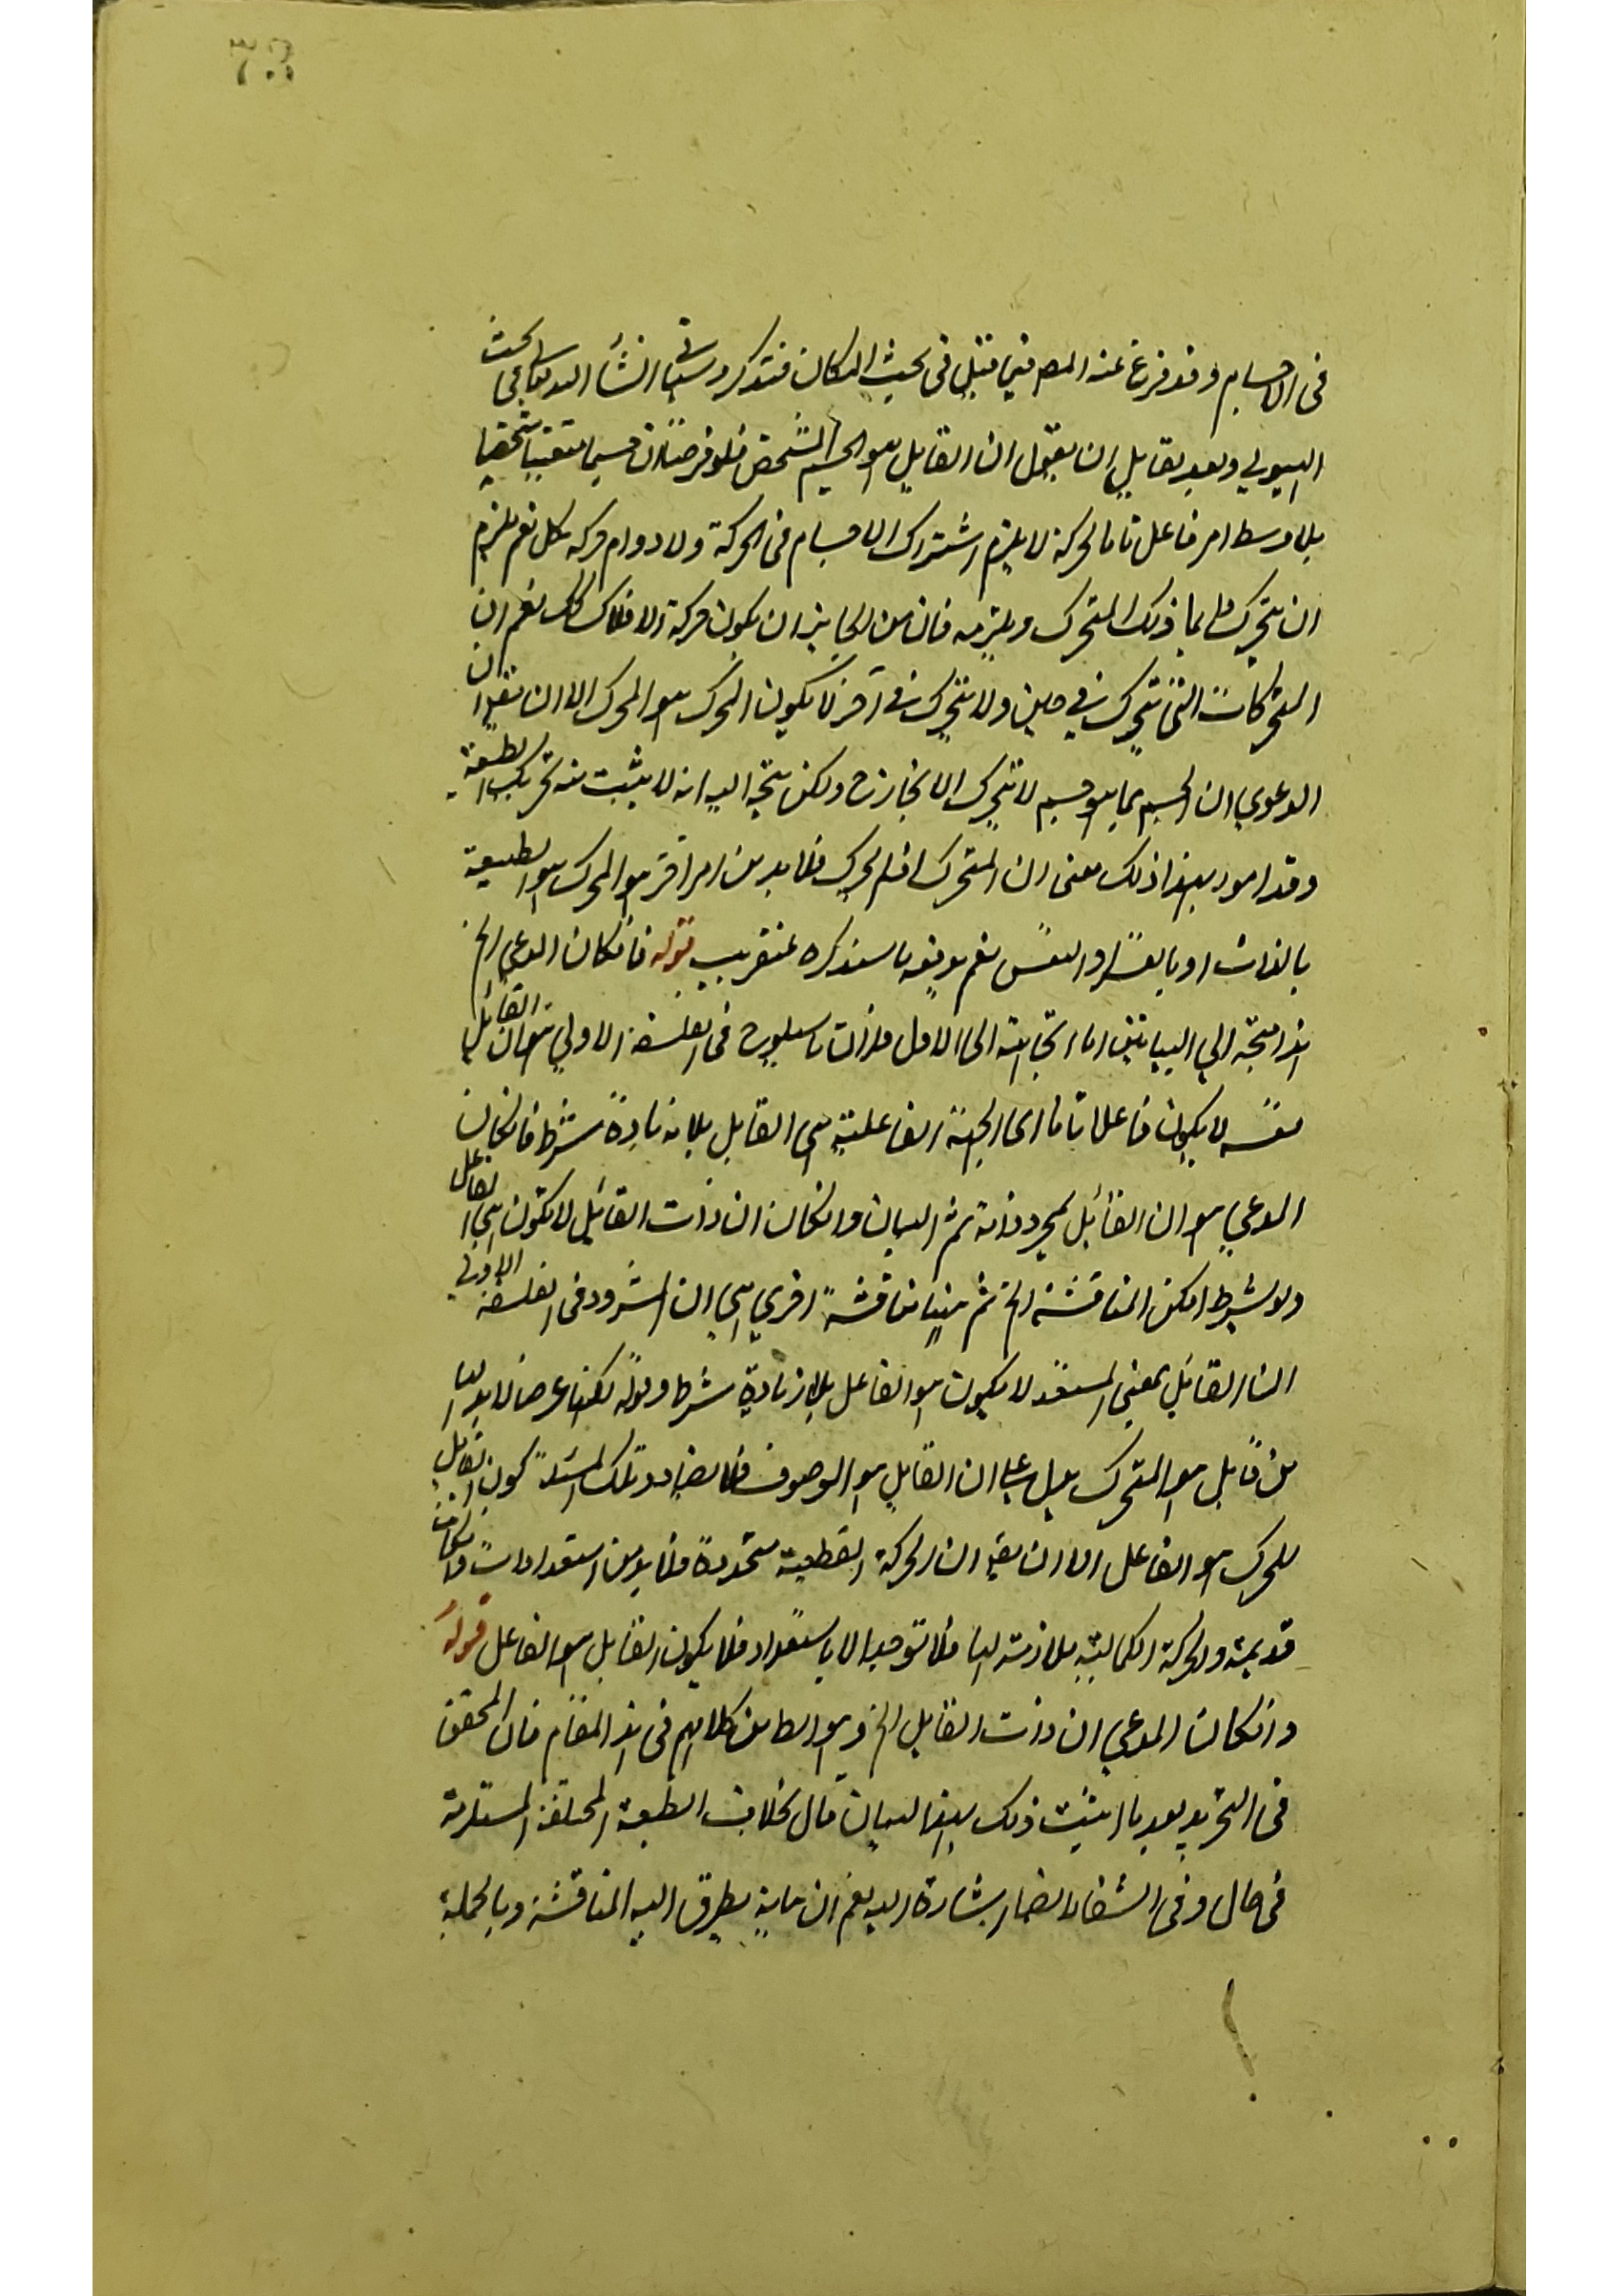 فى الاجسام وقد فرغ عنه المص فيما قبل فى بحث المكان فتذكر وسياتى انشأ الله تعالى فى بحث
الهيولى وبعد لقايل ان يقول ان القايل هو الجسم الشخص فلو فرضنا ان جسما متعينا شخصيا
بلا وسط امر فاعل تاما لحركة لا يلزم اشتراك الاجسام فى الحركة ولا دوام حركة كل نعم يلزم
ان يتحرك دايما ذلك المتحرك ويلزمه فان من الجايز ان يكون حركة الافلاك كك نعم ان
المتحركات التى تتحرك فى حين ولا تتحرك فى آخر لا يكون المحرك هو المحرك الا ان يقال ان
الدعوى ان الجسم بما هو جسم لا يتحرك الا بخارج ولكن يتجه اليه انه لا يثبت منه تحريك الطبيعة
وقد امور بهذا ذلك معنى ان المتحرك اذا تحرك فلا بد من امر آخر هو المحرك هو الطبيعة
بالذات او بالقسر او النفس نعم يدفعه ما سنذكره عنقريب قوله فانكان المدعى الخ
هذا متجه الى البيانين اما اتجاهه الى الاول فلان ما سلموه فى الفلسفة الاولى هو ان القابل
نفسه لا يكون فاعلا تاما اى الجهة الفاعلية هى القابل بلا زيادة شرط فانكان
المدعى هو ان القابل بمجرد ذاته تم البيان وانكان ان ذات القابل لا تكون هى الفاعل
ولو بشرط امكن المناقشة الخ ثم ههنا مناقشة اخرى هى ان المشهود فى الفلسفة الاولى
ان القابل بمعنى المستعد لا يكون هو الفاعل بلا زيادة شرط وقوله لكنها عرض لا بد لها
من قابل هو المتحرك يدل على ان القابل هو الموصوف فلا يضاد تلك المسئلة كون القابل
للحركة هو الفاعل الا ان يقال ان الحركة القطعية متجددة فلا بد من استعدادات وان كانت
قديمة والحركة الكمالية ملازمة لها فلا توجد الا باستعداد فلا يكون القابل هو الفاعل قوله
وانكان المدعى ان ذات القابل الخ وهو الظ من كلامهم فى هذا المقام فان المحقق
فى التجريد بعد ما اثبت ذلك بهذا البيان قال بخلاف الطبيعة المختلفة المستلزمة
فى حال وفى الشفاء ايضا اشارة اليه نعم ان ما يتطرق اليه المناقشة وبالجملة